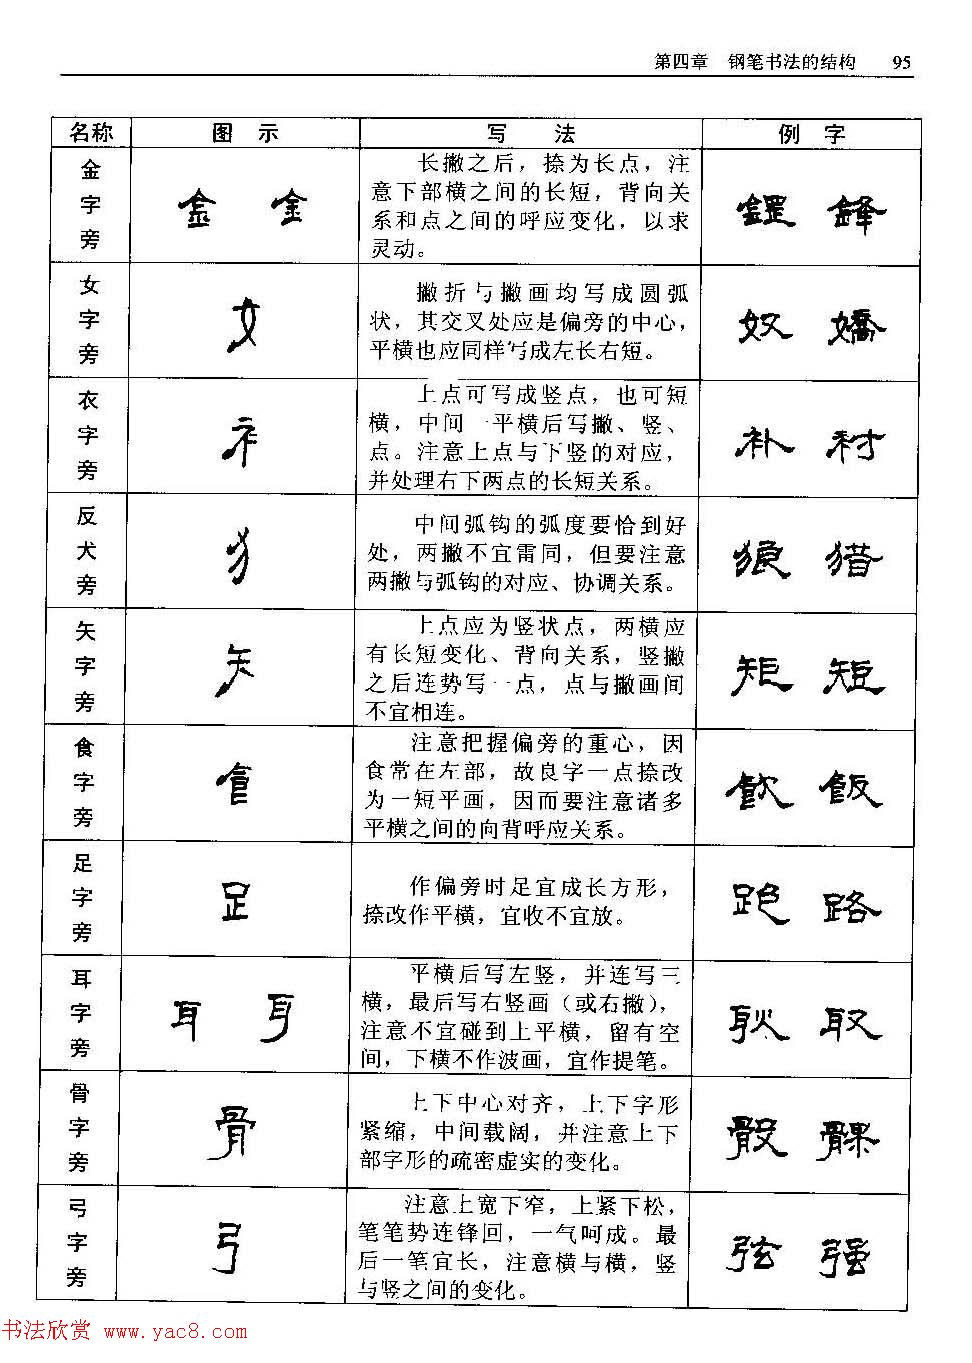 第四章 钢笔书法的结构 95
名称 图示 写法 例字
金字旁
金 金
长撇之后，捺为长点，注
意下部横之间的长短，背向关
系和点之间的呼应变化，以求
灵动。
鋒
女字旁
女
撇折与撇画均写成圆弧
状，其交叉处应是偏旁的中心，
平横也应同样写成左长右短。
奴 嬌
衣字旁
衤
上点可写成竖点，也可短
横，中间一平横后写撇、竖、
点。注意上点与下竖的对应，
并处理右下两点的长短关系。
补 衬
反犬旁
犭
中间弧钩的弧度要恰到好
处，两撇不宜雷同，但要注意
两撇与弧钩的对应、协调关系。
狼 猎
矢字旁
矢
上点应为竖状点，两横应
有长短变化、背向关系，竖撇
之后连势写一点，点与撇画间
不宜相连。
矩 短
食字旁
飠
注意把握偏旁的重心，因
食常在左部，故良字一点捺改
为一短平画，因而要注意诸多
平横之间的向背呼应关系。
飲 飯
足字旁
足
作偏旁时足宜成长方形，
捺改作平横，宜收不宜放。
跑 路
耳字旁
耳 耳
平横后写左竖，并连写三
横，最后写右竖画（或右撇），
注意不宜碰到上平横，留有空
间，下横不作波画，宜作提笔。
耿 取
骨字旁
骨
上下中心对齐，上下字形
紧缩，中间载阔，并注意上下
部字形的疏密虚实的变化。
骰 髁
弓字旁
弓
注意上宽下窄，上紧下松，
笔笔势连锋回，一气呵成。最
后一笔宜长，注意横与横，竖
与竖之间的变化。
弦 强
书法欣赏 www.yac8.com